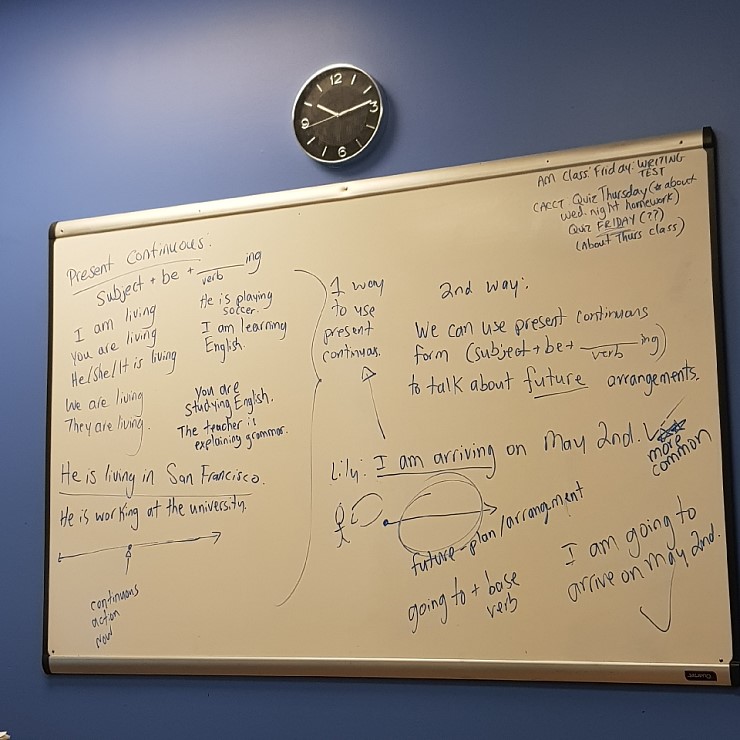 12
3
6
9
Am Class: Friday: WRITING
TEST
CACCT Quiz Thursday (* about
wed. night homework)
Quiz FRIDAY (??)
(About Thurs class)
Present Continuous:
Subject + be + ______ ing
verb
I am living
You are living
He/She/It is living
We are living
They are living.
He is playing
soccer.
I am learning
English.
You are
studying English.
The teacher is
explaining grammar.
He is living in San Francisco.
He is working at the university.
continuous
action
now
1 way
to use
present
continuous.
2nd way:
We can use present continuous
form (subject + be + ______ ing)
verb
to talk about future arrangements.
Lily: I am arriving on May 2nd.
more
common
future-plan/arrangement
going to + base
verb
I am going to
arrive on May 2nd.
Quartet